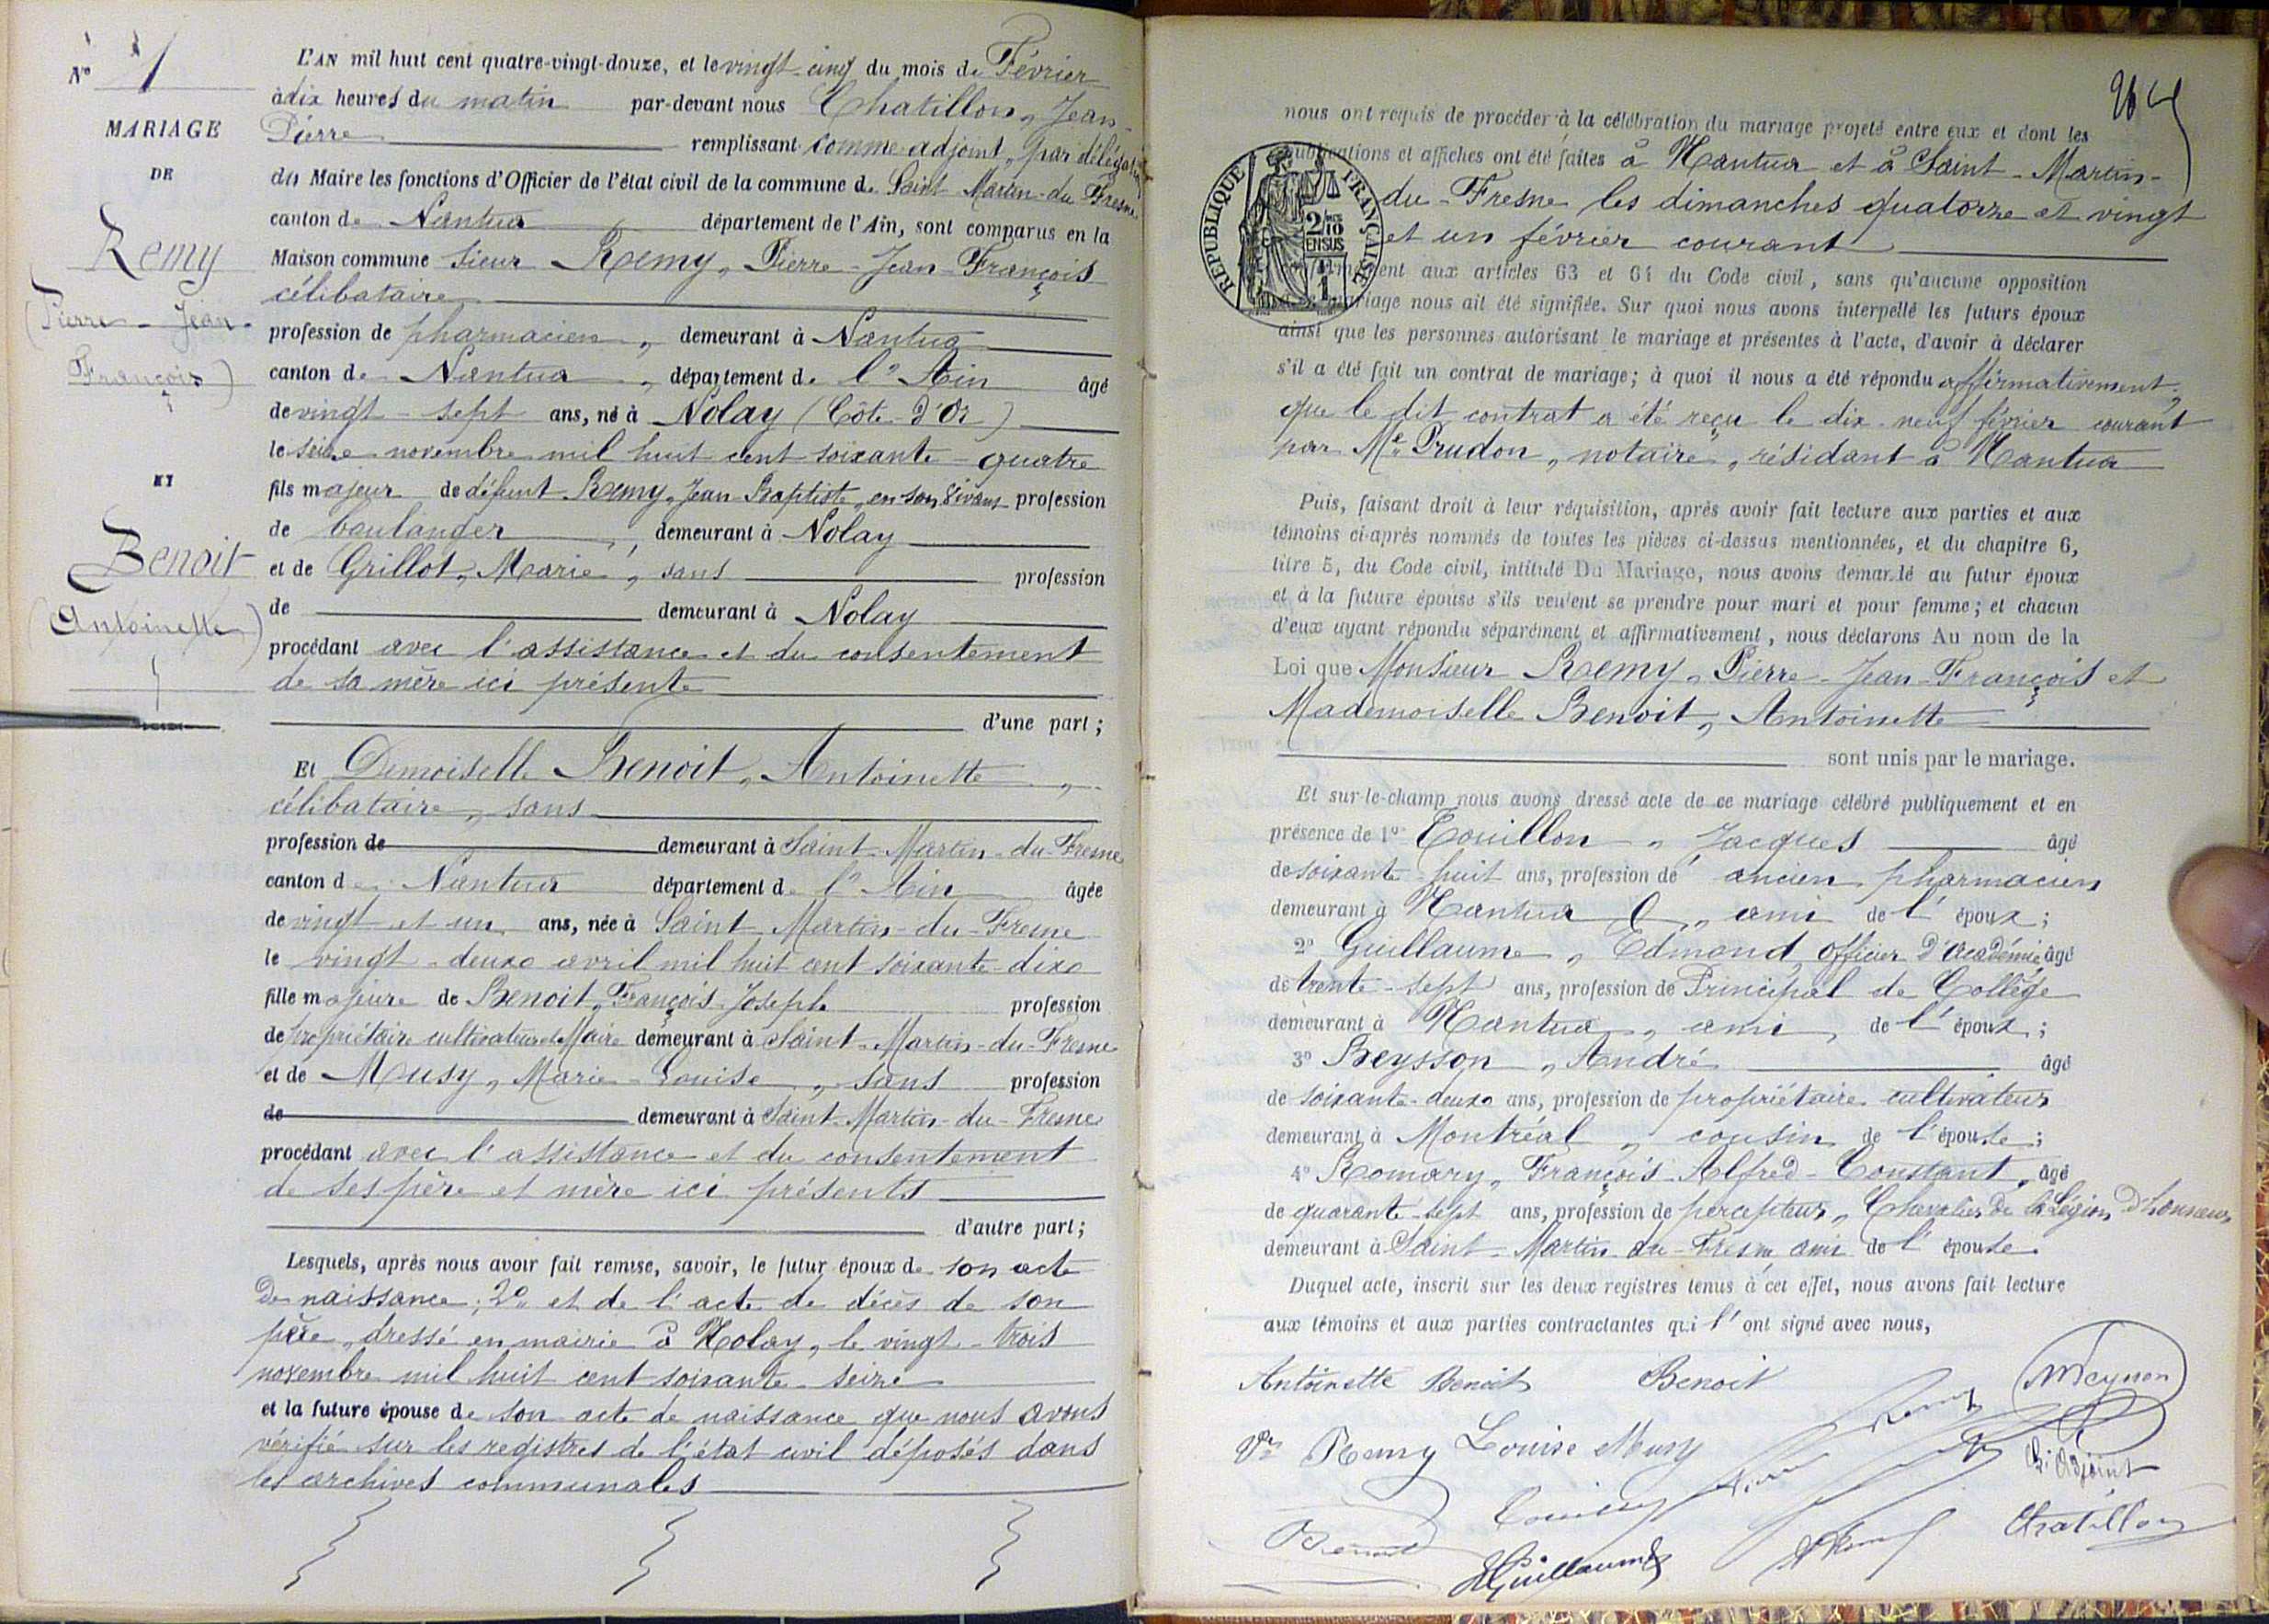 N° 1
MARIAGE
DE
Remy
(Pierre-Jean-
François)
ET
Benoit
(Antoinette)
L'AN mil huit cent quatre-vingt-douze, et le vingt-cinq du mois de Février
à dix heures du matin par-devant nous Chatillon, Jean-
Pierre remplissant comme adjoint, par délégation
du Maire les fonctions d'Officier de l'état civil de la commune de Saint-Martin-du-Fresne
canton de Nantua département de l'Ain, sont comparus en la
Maison commune sieur Remy, Pierre-Jean-François
célibataire
profession de pharmacien, demeurant à Nantua
canton de Nantua, département de l'Ain âgé
de vingt-sept ans, né à Nolay (Côte-d'Or)
le seize novembre mil huit cent soixante-quatre
fils majeur de défunt Remy, Jean-Baptiste, en son vivant profession
de boulanger, demeurant à Nolay
et de Grillot, Marie, sans profession
de demeurant à Nolay
procédant avec l'assistance et du consentement
de sa mère ici présente
d'une part;
Et Demoiselle Benoit, Antoinette,
célibataire, sans
profession de demeurant à Saint-Martin-du-Fresne
canton de Nantua département de l'Ain âgée
de vingt et un ans, née à Saint-Martin-du-Fresne
le vingt-deux avril mil huit cent soixante-dix
fille majeure de Benoit, François-Joseph profession
de propriétaire cultivateur et Maire demeurant à Saint-Martin-du-Fresne
et de Musy, Marie-Louise, sans profession
de demeurant à Saint-Martin-du-Fresne
procédant avec l'assistance et du consentement
de ses père et mère ici présents
d'autre part;
Lesquels, après nous avoir fait remise, savoir, le futur époux de son acte
de naissance; 2° et de l'acte de décès de son
père, dressé en mairie à Nolay, le vingt-trois
novembre mil huit cent soixante-seize
et la future épouse de son acte de naissance que nous avons
vérifié sur les registres de l'état civil déposés dans
les archives communales
nous ont requis de procéder à la célébration du mariage projeté entre eux et dont les
publications et affiches ont été faites à Nantua et à Saint-Martin-
du-Fresne les dimanches quatorze et vingt
et un février courant
RÉPUBLIQUE FRANÇAISE
2/10
EN SUS
conformément aux articles 63 et 64 du Code civil, sans qu'aucune opposition
mariage nous ait été signifiée. Sur quoi nous avons interpellé les futurs époux
ainsi que les personnes autorisant le mariage et présentes à l'acte, d'avoir à déclarer
s'il a été fait un contrat de mariage; à quoi il nous a été répondu affirmativement,
que le dit contrat a été reçu le dix-neuf février courant
par Me Prudon, notaire, résidant à Nantua
Puis, faisant droit à leur réquisition, après avoir fait lecture aux parties et aux
témoins ci-après nommés de toutes les pièces ci-dessus mentionnées, et du chapitre 6,
titre 5, du Code civil, intitulé Du Mariage, nous avons demandé au futur époux
et à la future épouse s'ils veulent se prendre pour mari et pour femme; et chacun
d'eux ayant répondu séparément et affirmativement, nous déclarons Au nom de la
Loi que Monsieur Remy, Pierre-Jean-François et
Mademoiselle Benoit, Antoinette
sont unis par le mariage.
Et sur-le-champ nous avons dressé acte de ce mariage célébré publiquement et en
présence de 1° Touillon, Jacques âgé
de soixante-huit ans, profession de ancien pharmacien
demeurant à Nantua, ami de l'époux;
2° Guillaume, Edmond, officier d'académie âgé
de trente-sept ans, profession de Principal de Collège
demeurant à Nantua, ami de l'époux;
3° Beysson, André âgé
de soixante-deux ans, profession de propriétaire cultivateur
demeurant à Montréal, cousin de l'épouse;
4° Romary, François-Alfred-Constant, âgé
de quarante-sept ans, profession de percepteur, Chevalier de la Légion d'honneur
demeurant à Saint-Martin-du-Fresne ami de l'épouse.
Duquel acte, inscrit sur les deux registres tenus à cet effet, nous avons fait lecture
aux témoins et aux parties contractantes qui l'ont signé avec nous,
Antoinette Benoit Benoit
Vve Remy Louise Musy Remy
L'adjoint
Chatillon
Guillaume